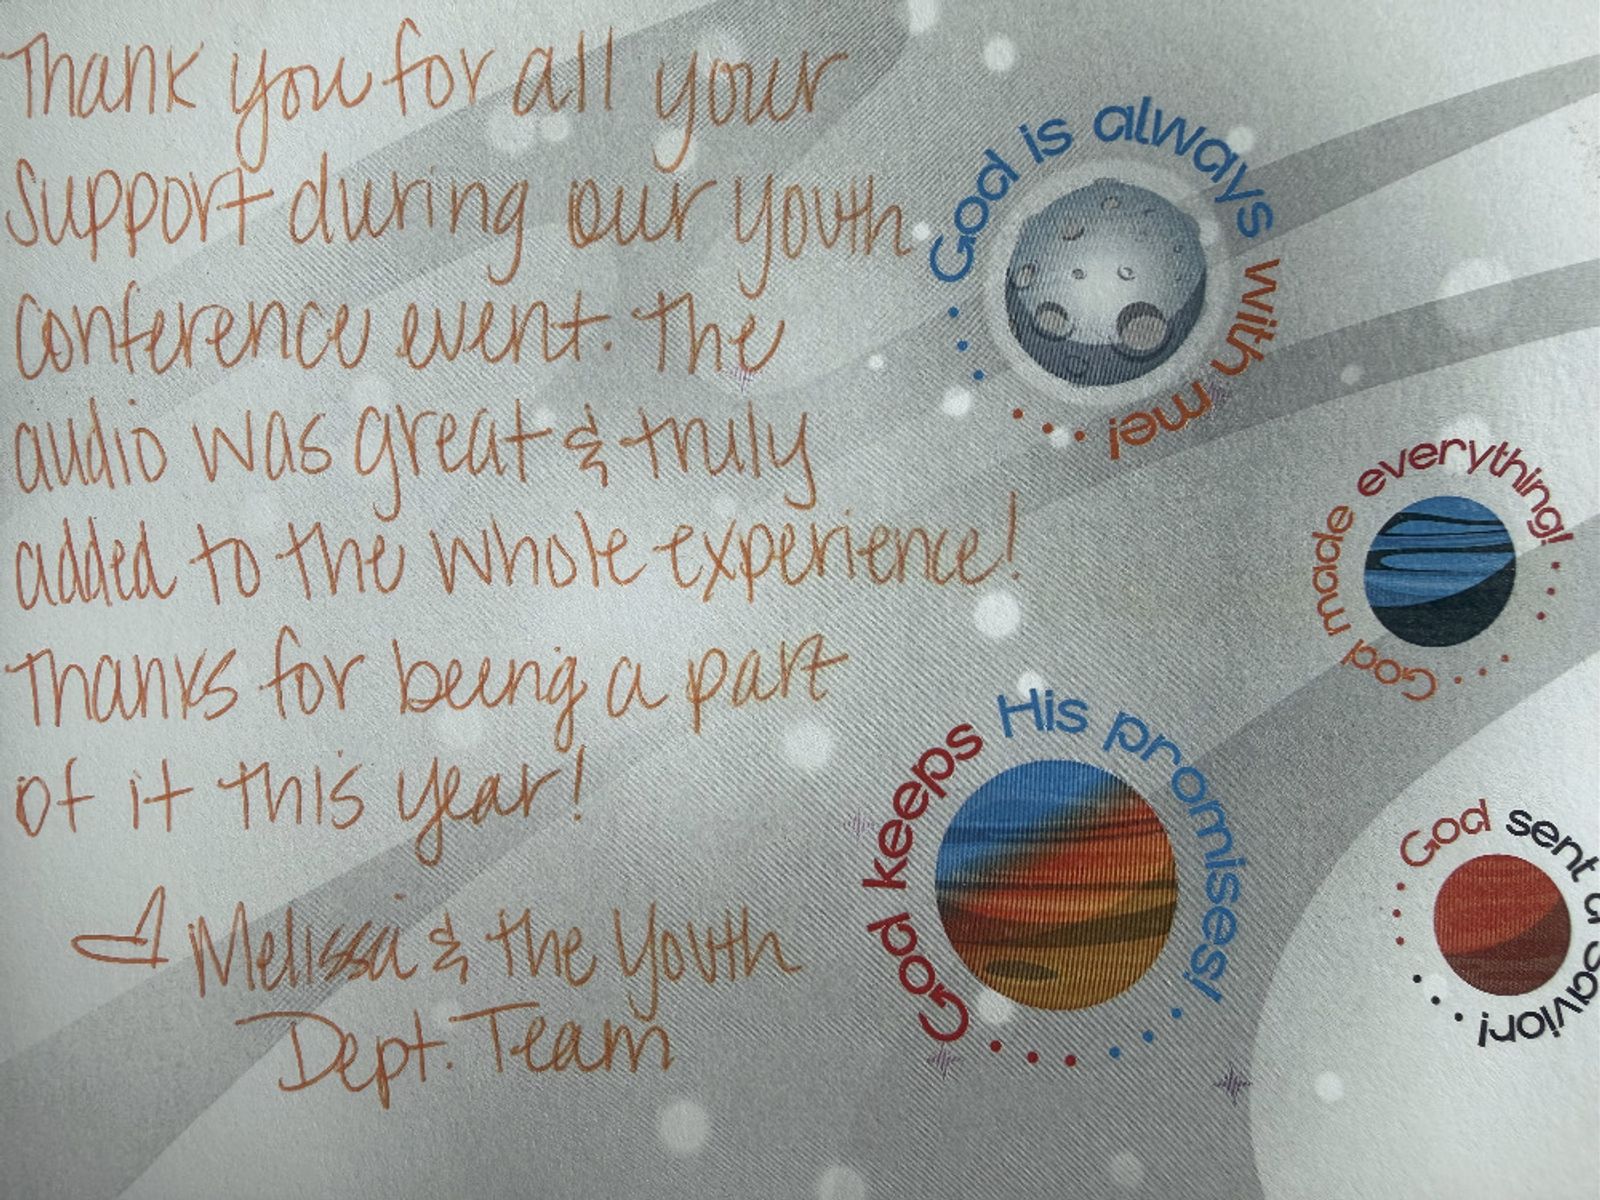 Thank you for all your
Support during our youth
Conference event. The
audio was great & truly
added to the whole experience!
Thanks for being a part
of it this year!
Melissa & the Youth
Dept. Team
God is always with me!
God made everything!
God keeps His promises!
God sent a Savior!